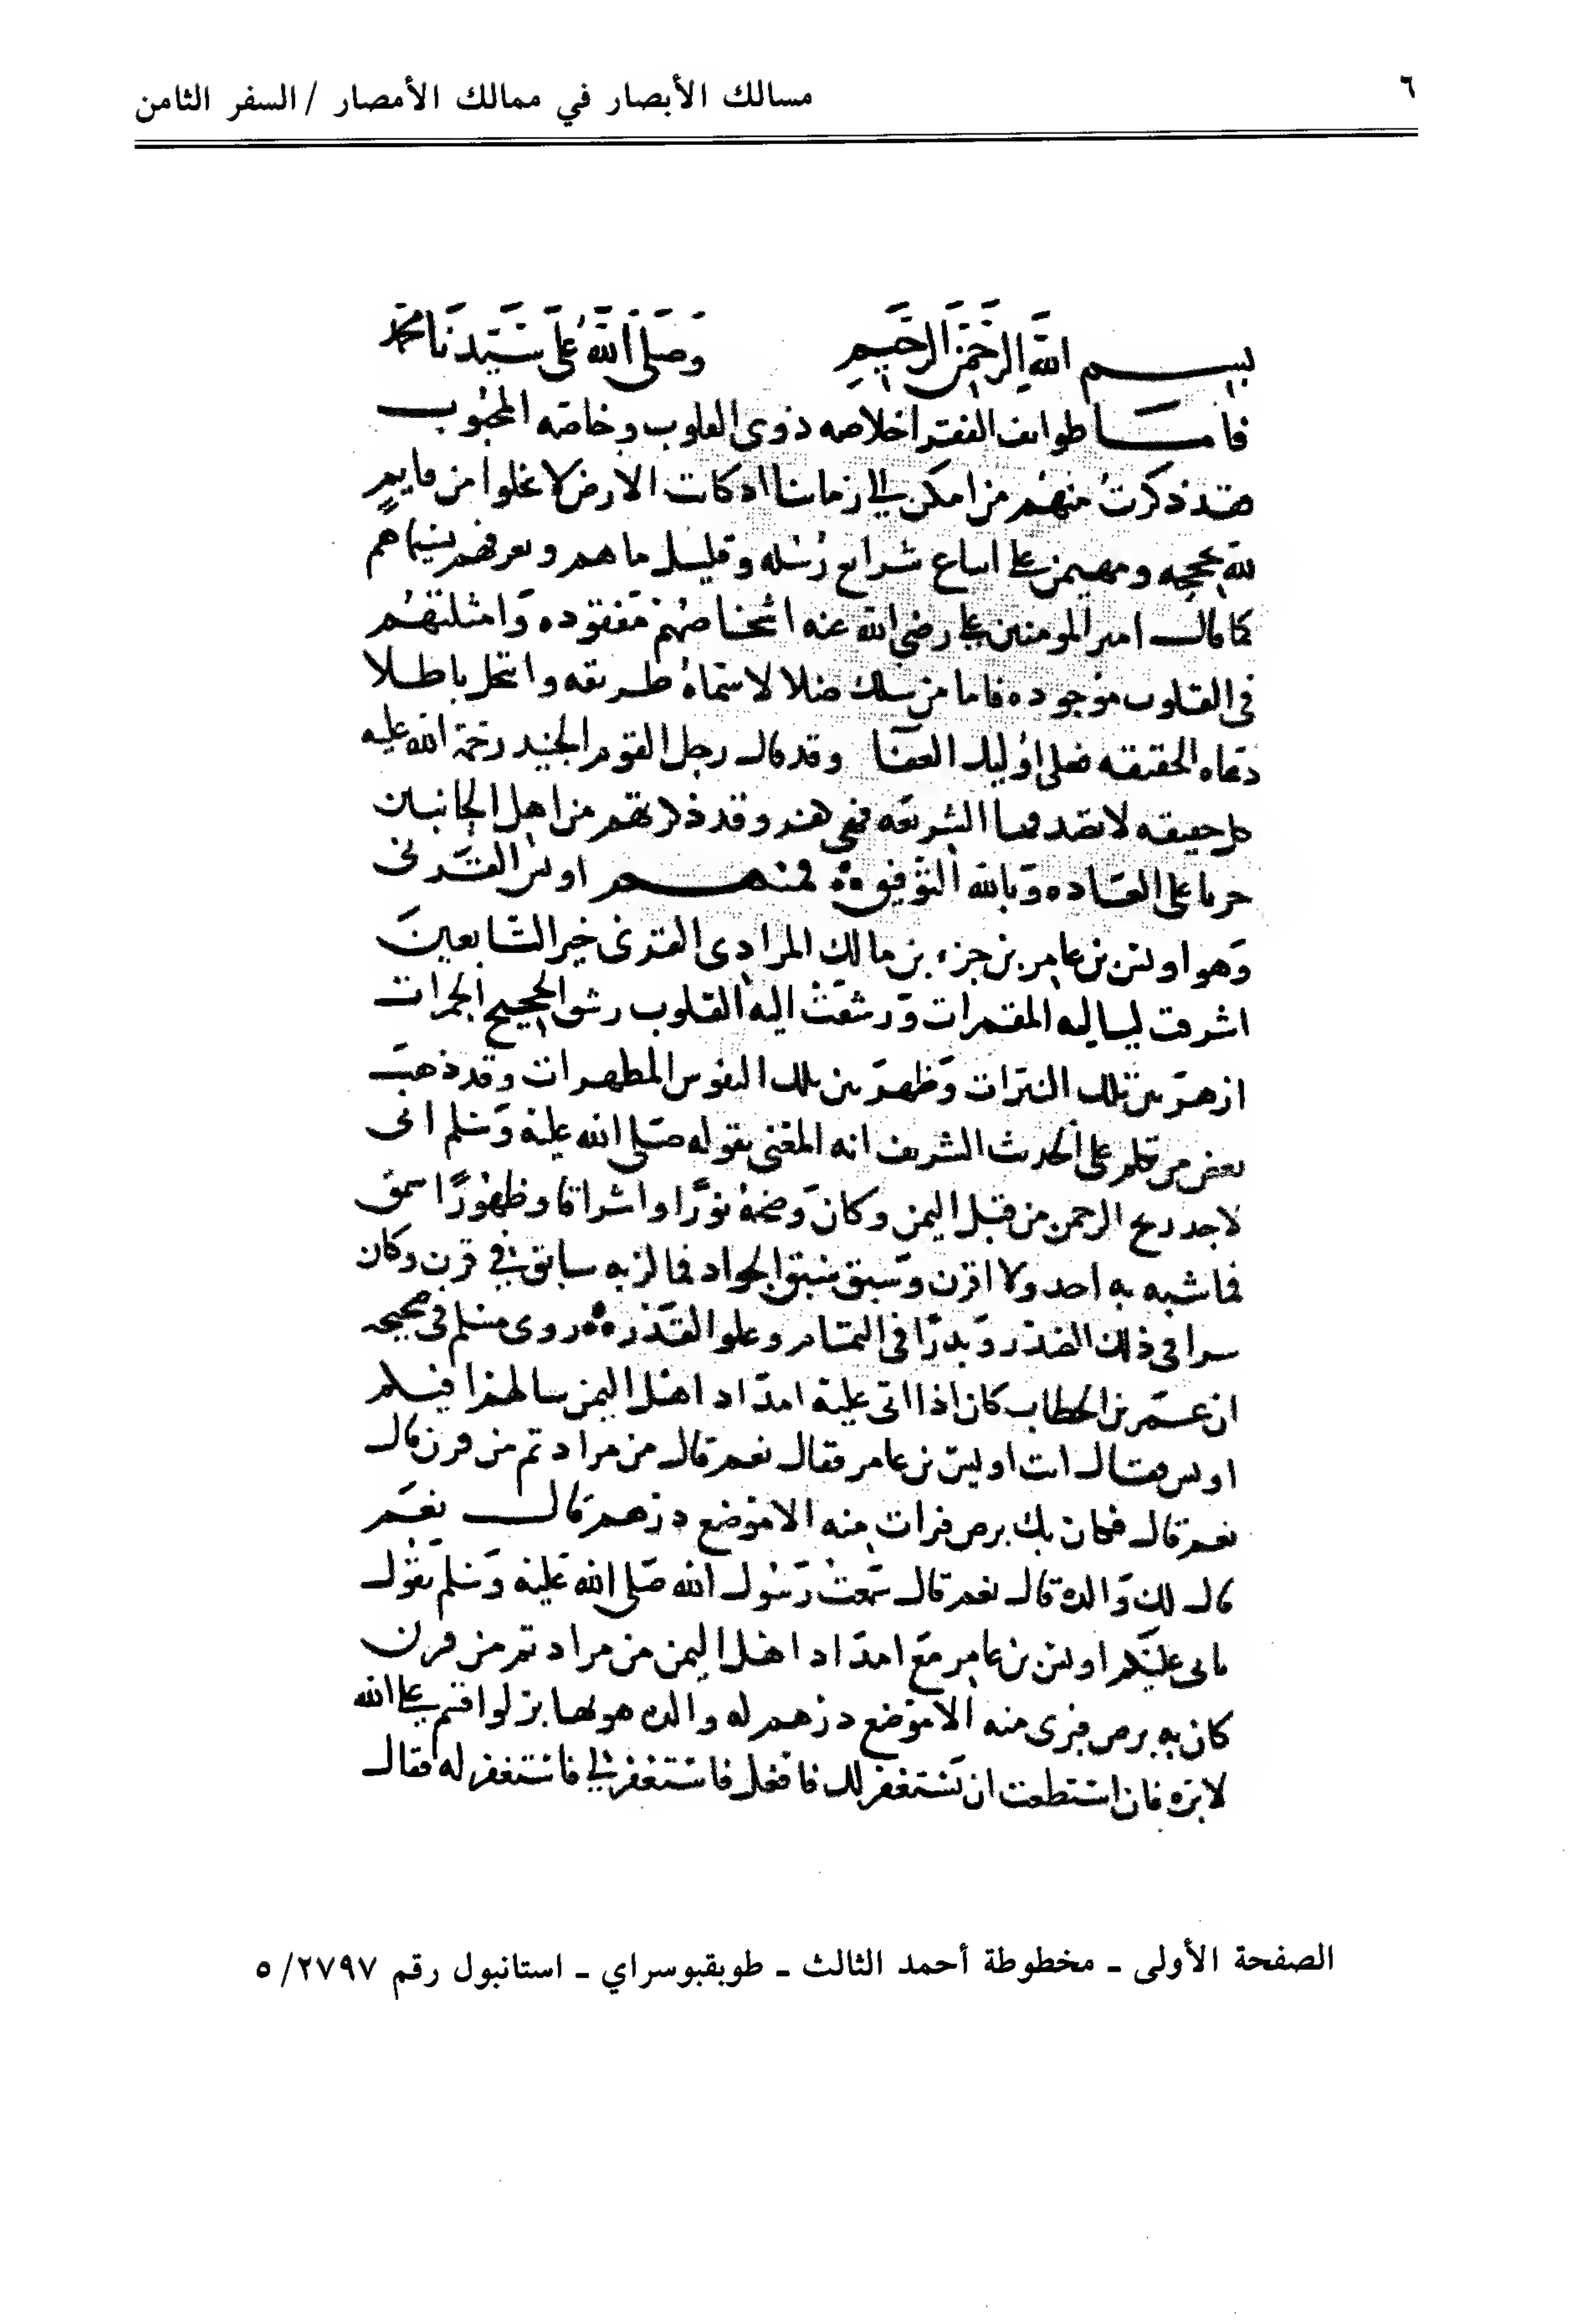 ٦
مسالك الأبصار في ممالك الأمصار / السفر الثامن
بسم الله الرحمن الرحيم وصلى الله على سيدنا محمد
فاما طوايف الفقر اخلاصه ذوى القلوب وخاصه المحبوب
فقد ذكرت منهم من امكن الى زماننا اذ كانت الارض لا تخلوا من قايم
لله بحججه ومهيمن على اتباع شرايع رسله وقليل ما هم ونعرفهم بسيماهم
كما قال امير المومنين على رضي الله عنه اشخاصهم مفقوده وامثلتهم
في القلوب موجوده فاما من سلك ضلالا سماه طريقه وانتحل باطلا
دعاه الحقيقه فعلى اوليك العفا وقد قال رجل القوم الجنيد رحمة الله عليه
كل حقيقه لا تقدمها الشريعه فهى هند وقد ذكرتهم من اهل الجانبين
جريا على العاده وبالله التوفيق فمنهم اويس القرنى
وهو اويس بن عامر بن جزء بن مالك المرادى القرنى خير التابعين
اشرقت لياليه المقمرات ورشقت اليه القلوب رشق الحجيج الجمرات
ازهر بين تلك النيرات وظهر بين تلك النفوس المطهرات وقد ذهب
بعض من تكلم على الحديث الشريف انه المعنى بقوله صلى الله عليه وسلم انى
لاجد ريح الرحمن من قبل اليمن وكان وضحه نورًا واشراقا وظهورًا سمق
فما شبه به احد ولا اقرن وسبق سبق الجواد فما لز به سابق في قرن وكان
سرا في ذلك الصدر وبدرًا في التمام وعلو القدر روى مسلم في صحيحه
ان عمر بن الخطاب كان اذا اتى عليه امداد اهل اليمن سالهم افيكم
اويس فقال انت اويس بن عامر فقال نعم قال من مراد ثم من قرن قال
نعم قال فكان بك برص فبرات منه الا موضع درهم قال نعم
قال لك والدة قال نعم قال سمعت رسول الله صلى الله عليه وسلم يقول
ياتى عليكم اويس بن عامر مع امداد اهل اليمن من مراد ثم من قرن
كان به برص فبرى منه الا موضع درهم له والدة هو بها بر لو اقسم على الله
لابره فان استطعت ان يستغفر لك فافعل فاستغفر لي فاستغفر له فقال
الصفحة الأولى - مخطوطة أحمد الثالث - طوبقبوسراي - استانبول رقم ٢٧٩٧/ ٥